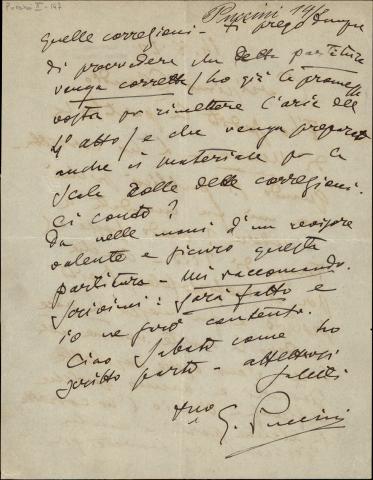 Puccini II - 147
Puccini 14/8
quelle correzioni - Ti prego dunque
di provvedere che detta partitura
venga corretta / ho già la
vostra per rimettere l'aria del
4º atto / e che venga preparato
anche il materiale per la
Scala colle dette correzioni.
Ci conto?
Da nelle mani d'un revisore
valente e sicuro questa
partitura - Mi raccomando.
Scrivimi: sarà fatto e
io ne sarò contento.
Ciao Sabato come ho
scritto parto - affettuosi
saluti
tuo
G. Puccini